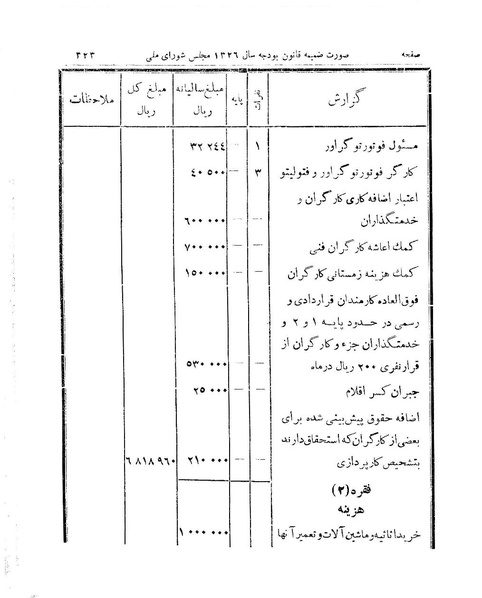 صفحه صورت ضمیمه قانون بودجه سال ۱۳۲۶ مجلس شورای ملی ۳۲۳
گزارش نفرات پایه مبلغ سالیانه ریال مبلغ کل ریال ملاحظات
مسئول فوتورتوگراور ۱ — ۳۲ ۲۴۴
کارگر فوتورتوگراور و فتولیتو ۳ — ۴۰ ۵۰۰
اعتبار اضافه کاری کارگران و
خدمتگذاران — — ۶۰۰ ۰۰۰
کمک اعاشه کارگران فنی — — ۷۰۰ ۰۰۰
کمک هزینه زمستانی کارگران — — ۱۵۰ ۰۰۰
فوق‌العاده کارمندان قراردادی و
رسمی در حدود پایه ۱ و ۲ و
خدمتگذاران جزء و کارگران از
قرار نفری ۲۰۰ ریال درماه ۵۳۰ ۰۰۰
جبران کسر اقلام — — ۲۵ ۰۰۰
اضافه حقوق پیش‌بینی شده برای
بعضی از کارگران که استحقاق دارند
بتشخیص کارپردازی — — ۲۱۰ ۰۰۰ ۶ ۸۱۸ ۹۶۰
فقره (۲)
هزینه
خرید اثاثیه و ماشین آلات و تعمیر آنها — — ۱ ۰۰۰ ۰۰۰